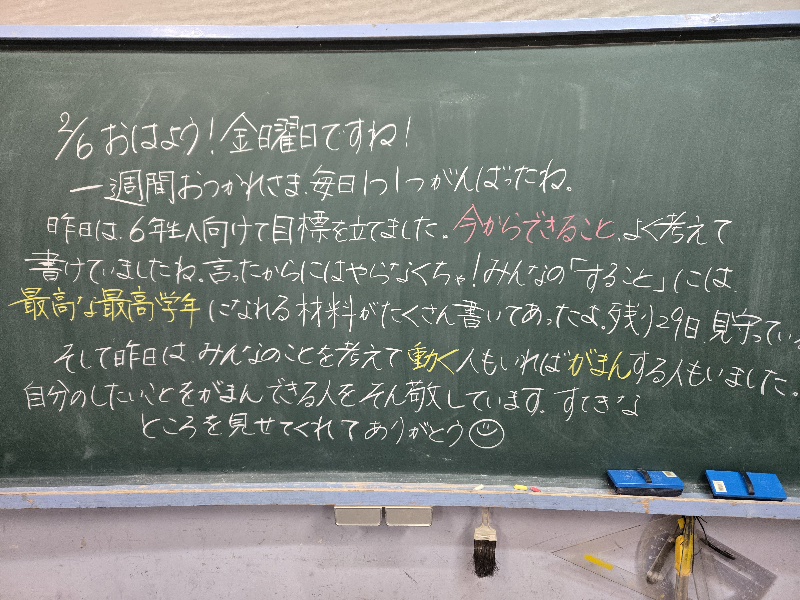 2/6 おはよう！金曜日ですね！
一週間おつかれさま。毎日1つ1つがんばったね。
昨日は、6年生へ向けて目標を立てました。今からできること、よく考えて
書けていましたね。言ったからにはやらなくちゃ！みんなの「すること」には
最高な最高学年になれる材料がたくさん書いてあったよ。残り29日、見守ってい
そして昨日は、みんなのことを考えて動く人もいればがまんする人もいました。
自分のしたいことをがまんできる人をそん敬しています。すてきな
ところを見せてくれてありがとう